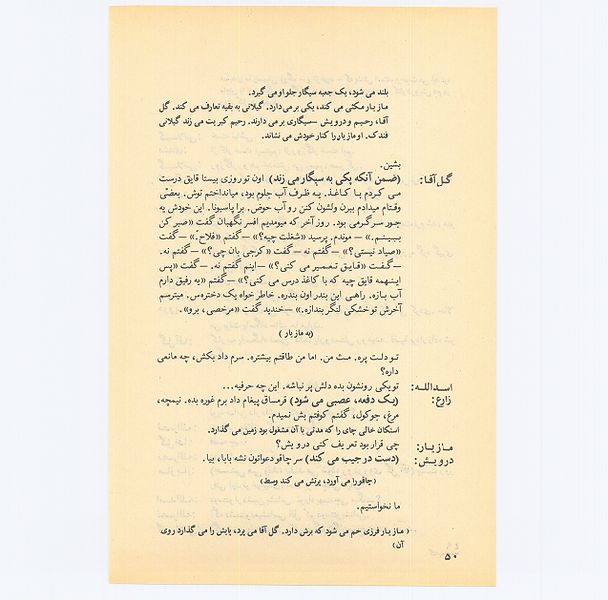 بلند می شود، یک جعبه سیگار جلو او می گیرد.
مازیار مکثی می کند، یکی برمی دارد. گیلانی به بقیه تعارف می کند. گل
آقا، رحیم و درویش – سیگاری بر می دارند. رحیم کبریت می زند گیلانی
فندک. او مازیار را کنار خودش می نشاند.
بشین.
گل آقا: (ضمن آنکه پکی به سیگار می زند) اون تو روزی بیستا قایق درست
می کردم با کاغذ. یه ظرف آب جلوم بود، میانداختم توش. بعضی
وقتام میدادم ببرن ولشون کنن رو آب حوض. برا پاسبونا. این خودش یه
جور سرگرمی بود. روز آخر که میومدیم افسر نگهبان گفت «صبر کن
ببینم.» – موندم. پرسید «شغلت چیه؟» – گفتم «فلاح.» – گفت
«صیاد نیستی؟» – گفتم نه – گفت «کرجی بان چی؟» – گفتم نه.
– گفت «قایق تعمیر می کنی؟» – اینم گفتم نه. – گفت «پس
اینهمه قایق چیه که با کاغذ درس می کنی؟» – گفتم «یه رفیق دارم
آب بازه. راهی این بندر اون بندره. خاطرخواه یک دختره س. میترسم
آخرش تو خشکی لنگر بندازه.» – خندید گفت «مرخصی، برو».
(به مازیار)
تو دلت پره. مث من. اما من طاقتم بیشتره. سرم داد بکش، چه مانعی
داره؟
اسدالله: تو یکی رونشون بده دلش پر نباشه. این چه حرفیه...
زارع: (یک دفعه، عصبی می شود) قرمساق پیغام داد برم غوره بده. نیمچه،
مرغ، جوکول، گفتم کوفتم بش نمیدم.
استکان خالی چای را که مدتی با آن مشغول بود زمین می گذارد.
مازیار: چی قرار بود تعریف کنی درویش؟
درویش: (دست در جیب می کند) سر چاقو دعواتون نشه بابا، بیا.
(چاقو را می آورد، پرتش می کند وسط)
ما نخواستیم.
(مازیار فرزی خم می شود که برش دارد. گل آقا می پرد، پایش را می گذارد روی
آن)
۵۰